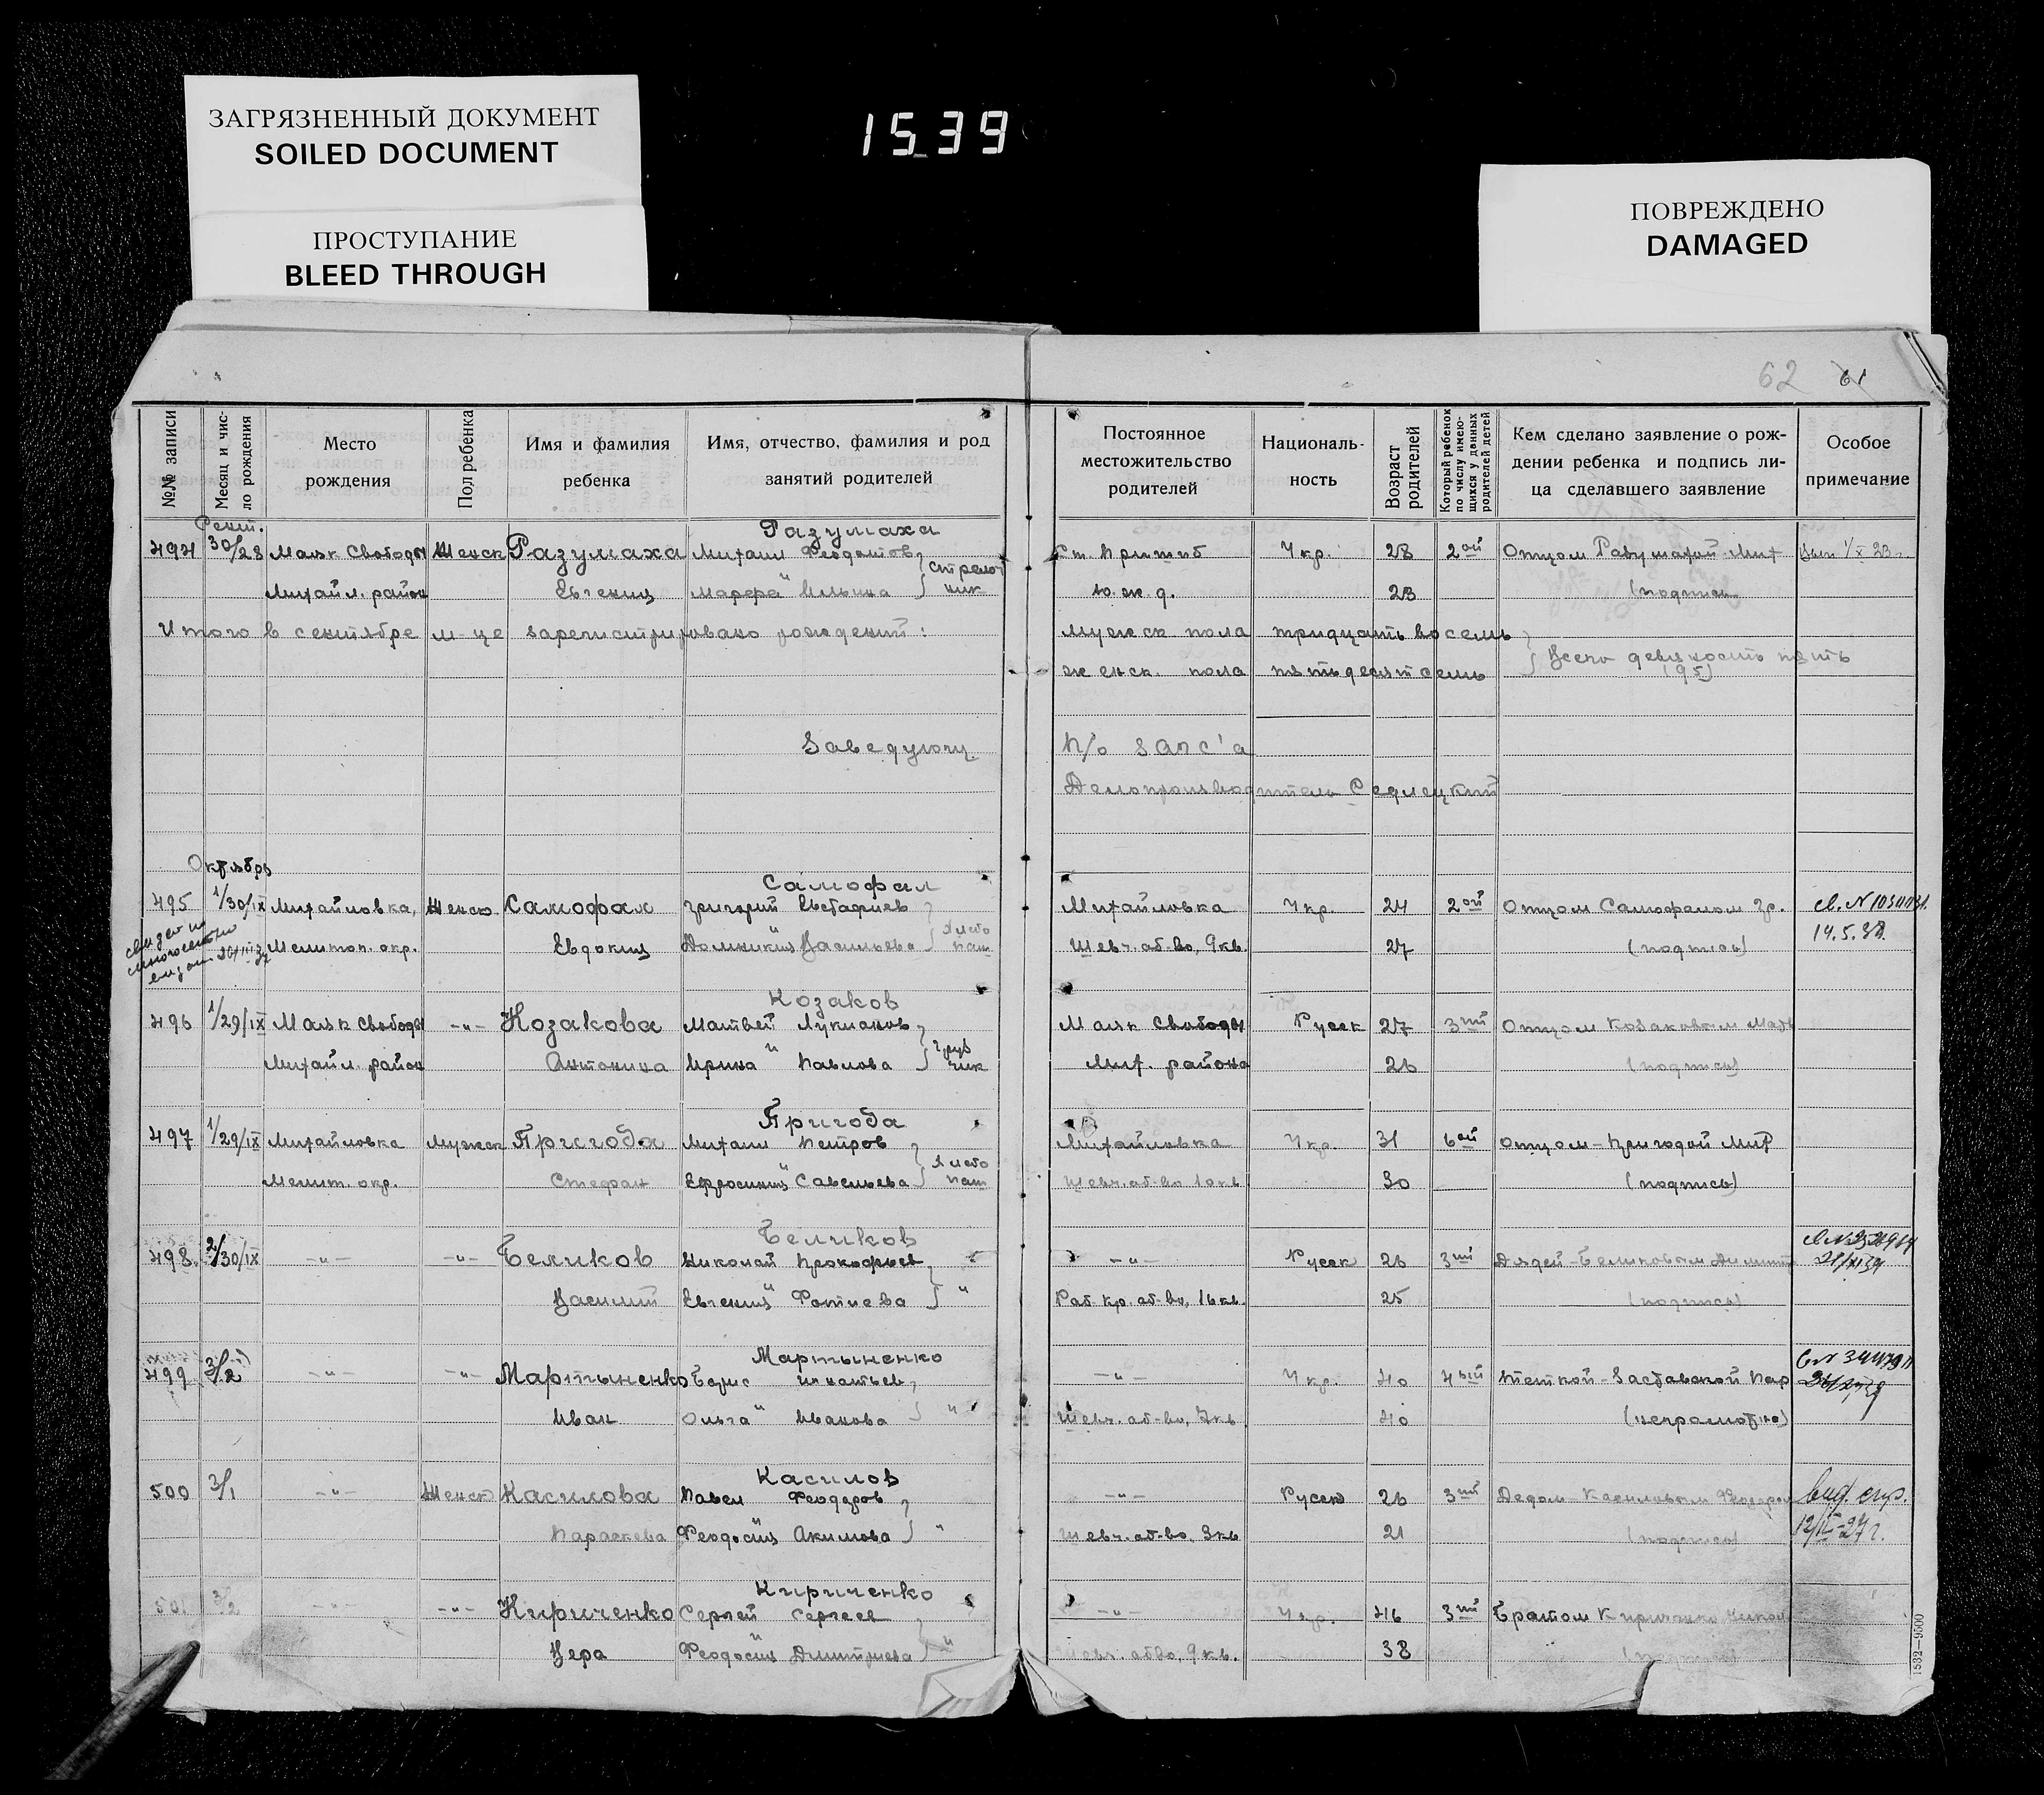 ЗАГРЯЗНЕННЫЙ ДОКУМЕНТ
SOILED DOCUMENT
ПРОСТУПАНИЕ
BLEED THROUGH
1539
ПОВРЕЖДЕНО
DAMAGED
62 61
№№ записи
Месяц и чис-
ло рождения
Место
рождения
Пол ребенка
Имя и фамилия
ребенка
Имя, отчество, фамилия и род
занятий родителей
Постоянное
местожительство
родителей
Националь-
ность
Возраст
родителей
Который ребенок
по числу имею-
щихся у данных
родителей детей
Кем сделано заявление о рож-
дении ребенка и подпись ли-
ца сделавшего заявление
Особое
примечание
Сент. Разумаха
494 30/28 Маяк Свободы Женск Разумаха Михаил Феодотов Ст. Пришиб Укр. 28 2ой Отцом Разумахой Мих
Михайл. район Евгения Марфа Ильина ю.ж.д. 23 (подпись
Итого в сентябре м-це зарегистрировано рождений: мужск пола тридцать восемь
женск. пола пятьдесят семь Всего девяносто пять (95)
Заведующ П/о Загс'а
Делопроизводитель Седлецкий
Октябрь Самофал
495 1/30/IX Михайловка, Женск Самофал Григорий Евстафиев Михайловка Укр. 24 2ой Отцом Самофалом Гр.
Мелитоп. окр. Евдокия Домникия Васильева Хлебо паш Шевч. об-во, 9кв. 27 (подпись) 14.5.38.
Козаков
496 1/29/IX Маяк Свободы -"- Козакова Матвей Лукианов Маяк Свободы Русск 27 3ий Отцом Козаковым Матв
Михайл. район Антонина Ирина Павлова Мих. района 26 (подпись)
Пригода
497 1/29/IX Михайловка Мужск Пригода Михаил Петров Михайловка Укр. 31 6ой Отцом-Пригодой Мих
Мелит. окр. Стефан Ефросиния Савельева Хлебо паш Шевч. об-во 10кв 30 (подпись)
Беликов
498. 2/30/IX -"- -"- Беликов Николай Прокофьев -"- Русск 26 3ий Дядей-Беликовым
Василий Евгения Фотиева " Раб. кр. об-во, 16кв. 25 (подпись)
Мартыненко
499 3/2 -"- -"- Мартыненко Борис Игнатьев -"- Укр. 40 4ый Теткой-Заставской Пар
Иван Ольга Иванова " Шевч. об-во, 7кв 40 (неграмотна)
Касилов
500 3/1 -"- Женск Касилова Павел Феодоров -"- Русск 26 3ий Дедом-Касиловым Феодором
Параскева Феодосия Акимова " Шевч. об-во, 3кв 21 (подпись)
Кириченко
501 3/2 -"- -"- Кириченко Сергей Сергеев -"- Укр. 46 3ий Братом Кириченко
Вера Феодосия Димитриева " Шевч. обво, 9кв. 38 (подпись)
1532—9500